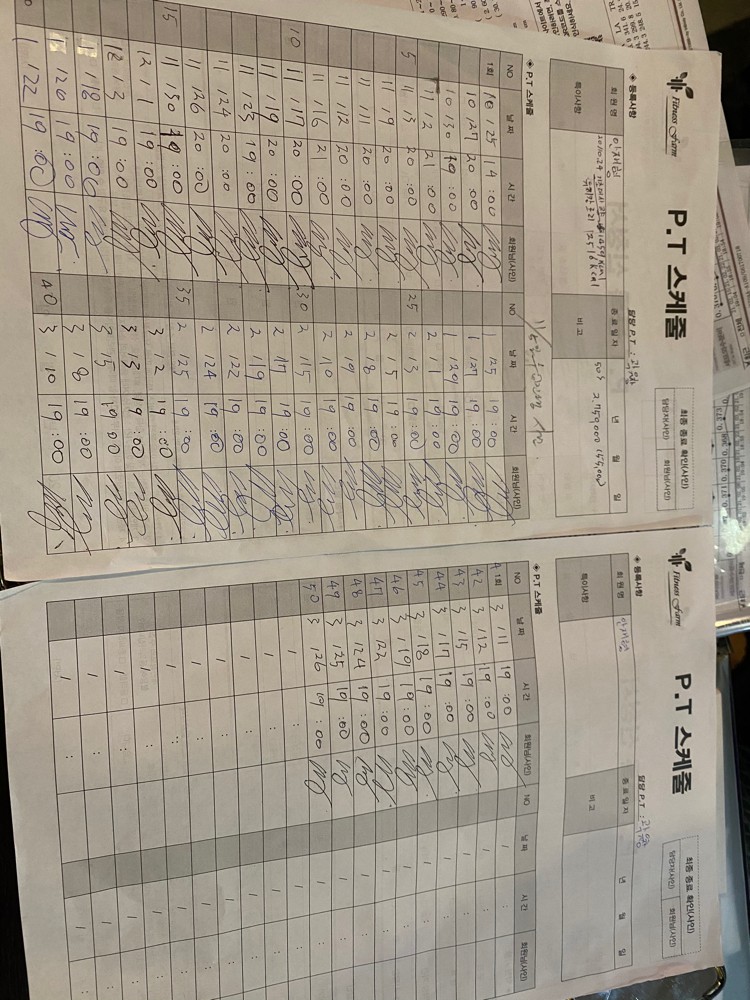 Fitness Farm
P.T 스케줄
최종 종료 확인(사인)
담당자(사인) 회원님(사인)
◈ 등록사항
담당 P.T :
회원명 안재현 종료일자 년 월 일
특이사항 비고 50회 2,750,000 (55,000)
◈ P.T 스케줄
NO 날짜 시간 회원님(사인) NO 날짜 시간 회원님(사인)
1회 10/25 19:00 1/25 19:00
10/27 20:00 1/27 19:00
10/30 19:00 1/29 19:00
11/2 21:00 2/1 19:00
5 11/3 20:00 25 2/3 19:00
11/9 20:00 2/5 19:00
11/11 20:00 2/8 19:00
11/12 20:00 2/9 19:00
11/16 2:00 2/10 19:00
10 11/17 20:00 30 2/15 19:00
11/19 20:00 2/17 19:00
11/23 19:00 2/19 19:00
11/24 20:00 2/22 19:00
11/26 20:00 2/24 19:00
15 11/30 19:00 35 2/25 19:00
12/1 19:00 3/2 19:00
12/3 19:00 3/3 19:00
1/18 19:00 3/5 19:00
1/20 19:00 3/8 19:00
1/22 19:00 40 3/10 19:00
Fitness Farm
P.T 스케줄
최종 종료 확인(사인)
담당자(사인) 회원님(사인)
◈ 등록사항
담당 P.T :
회원명 안재현 종료일자 년 월 일
특이사항 비고
◈ P.T 스케줄
NO 날짜 시간 회원님(사인) NO 날짜 시간 회원님(사인)
41회 3/11 19:00
42 3/12 19:00
43 3/15 19:00
44 3/17 19:00
45 3/18 19:00
46 3/19 19:00
47 3/22 19:00
48 3/24 19:00
49 3/25 19:00
50 3/26 19:00